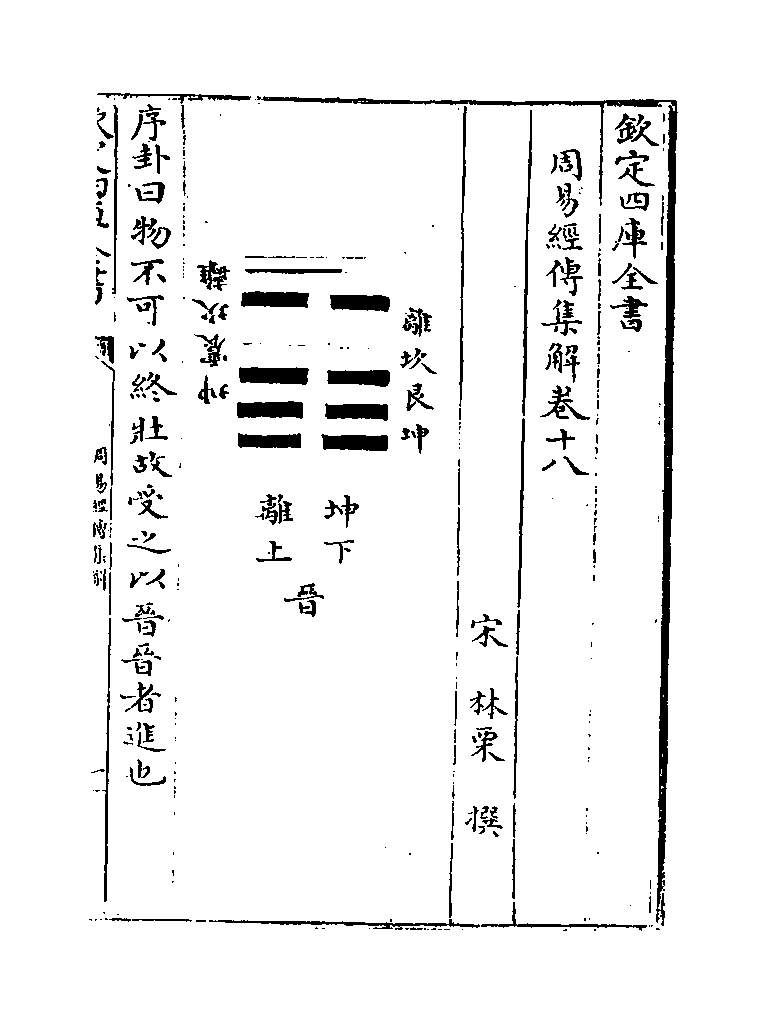 欽定四庫全書
周易經傳集解卷十八
宋 林栗 撰
離坎艮坤
坤下
離上
晉
坤震坎離
序卦曰物不可以終壯故受之以晉晉者進也
周易經傳集解